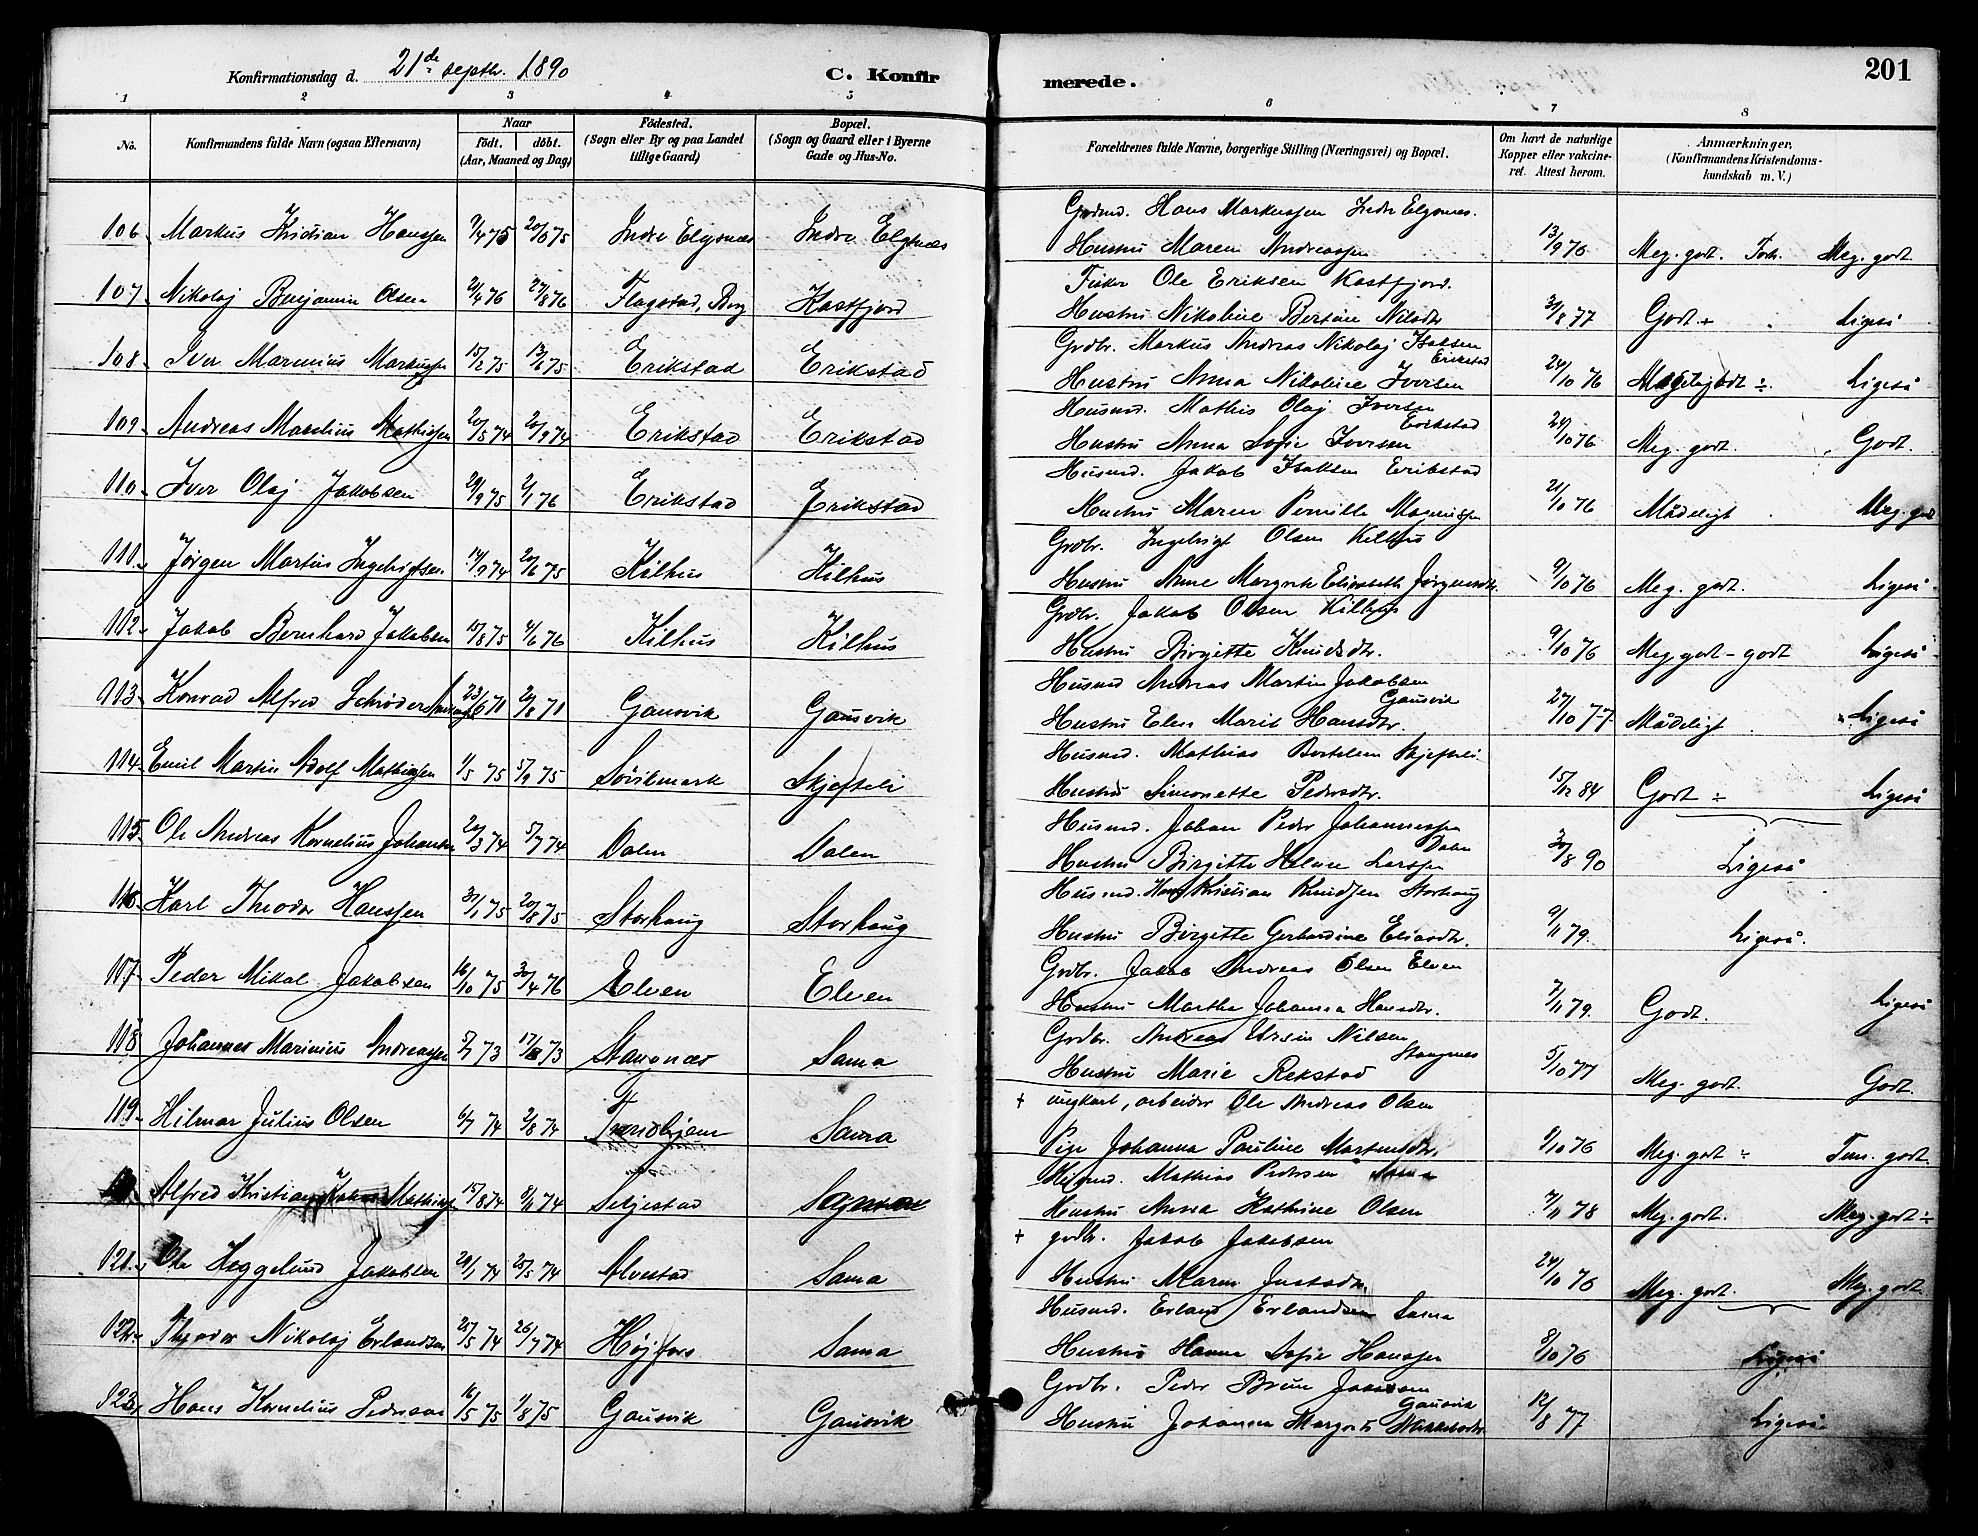 Konfirmationsdag d. 21de septbr. 1890
C. Konfirmerede.
201
1 2 3 4 5 6 7 8
No. Konfirmandens fulde Navn (ogsaa Efternavn) Naar født. døbt. (Aar, Maaned og Dag) Fødested. (Sogn eller By og paa Landet tillige Gaard) Bopæl. (Sogn og Gaard eller i Byerne Gade og Hus-No. Forældrenes fulde Navne, borgerlige Stilling (Næringsvei) og Bopæl. Om havt de naturlige Kopper eller vakcineret. Attest herom. Anmærkninger, (Konfirmandens Kristendomskundskab m. V.)
Hans Markussen Indre Elgsnes.
106. Markus Kristian Hanssen 75 75 Indre Elgsnæs Indre Elgsnæs Hustru Maren Andreassen 13/9 76 Meg. godt. Meg. godt
Fisker Ole Eriksen Kastfjord.
107. Nikolaj Benjamin Olsen 76 27/8 76 Flagstad, Berg Kastfjord Hustru Nikoline Bertine Nilsdtr 77 Godt ÷ Ligeså
Grdbr. Markus Andreas Nikolaj Isaksen Erikstad
108. Iver Marinius Markussen 15/2 75 13/6 75 Erikstad Erikstad Hustru Anna Nikoline Iversen 24/10 76 Ligeså
Husmd. Mathis Olaj Iversen Erikstad
109. Andreas Marelius Mathissen 20/5 74 20/9 74 Erikstad Erikstad Hustru Anna Sofie Iversen 24/10 76 Meg. godt. Godt.
Husmd. Jakob Isaksen Erikstad
110. Iver Olaj Jakobsen 29/9 75 2/1 76 Erikstad Erikstad Hustru Maren Pernille Magnussen 21/10 76 Mådeligt Meg. godt
Grdbr. Ingebrigt Olsen Kilhus
111. Jørgen Martin Ingebrigtsen 14/9 74 20/6 75 Kilhus Kilhus Hustru Anne Margrete Elisabeth Jørgensdtr. 9/10 76 Meg. godt. Ligeså
Grdbr. Jakob Olsen Kilhus
112. Jakob Bernhard Jakobsen 15/8 75 4/6 76 Kilhus Kilhus Hustru Birgitte Knudsdtr. 9/10 76 Meg godt - godt Ligeså
Husmd Andreas Martin Jakobsen Gausvik
113. Konrad Alfred Schrøder 23/6 71 Gausvik Gausvik Hustru Elen Marit Hansdtr. 27/10 77 Mådeligt Ligeså
Husmd. Mathias Bertelsen Skjefteli
114. Emil Martin Adolf Mathissen 1/5 75 5/9 75 Sørvikmark Skjefteli Hustru Simonette Pedersdtr. 15/12 84 Godt ÷ Ligeså
Husmd. Johan Peder Johannessen Dalen
115. Ole Andreas Kornelius Johansen 20/3 74 5/7 74 Dalen Dalen Hustru Birgitte Helene Larssen 90 Ligeså
Husmd. Hans Kristian Knudsen Storhaug
116. Karl Theodor Hanssen 31/1 75 20/8 75 Storhaug Storhaug Hustru Birgitte Gerhardine Eliasdtr. 9/11 79. Ligeså.
Grdbr. Jakob Andreas Olsen Elven
117. Peder Mikal Jakobsen 16/10 75 30/4 76 Elven Elven Hustru Martha Johanna Hansdtr. 7/11 79. Godt. Ligeså
Grdbr. Andreas Ursin Nilsen Stangnes
118. Johannes Marinius Andreassen 73 73 Stangnæs Sama Hustru Marie Rekstad 5/10 77 Meg. godt. Godt.
+ ungkarl, arbeider Ole Andreas Olsen
119. Hilmar Julius Olsen 6/7 74 2/8 74 Trondhjem Sama Pige Johanna Pauline Martinsdtr. 9/10 76 Meg. godt ÷ Tem. godt.
Husmd. Mathias Pedersen Sama
Alfred Kristian 15/8 74 8/11 74 Seljestad Hustru Anna Kathrine Olsen 7/11 78 Meg. godt. Meg. godt ÷
+ gdbr. Jakob Jakobsen
121. Ole Heggelund Jakobsen 29/1 74 25/5 74 Alvestad Sama Hustru Maren Justsdtr. 24/10 76 Meg. godt. Meg. godt.
Husmd. Erland Erlandsen Sama
122. Theodor Nikolaj Erlandsen 25/5 74 26/7 74 Højfors Sama Hustru Hanna Sofie Hanssen 8/10 76 Ligeså
Grdbr. Peder Brun Jakobsen Gausvik
123. Hans Kornelius Pedersen 16/5 75 1/8 75 Gausvik Gausvik Hustru Johanna Margrete 12/8 77 Ligeså